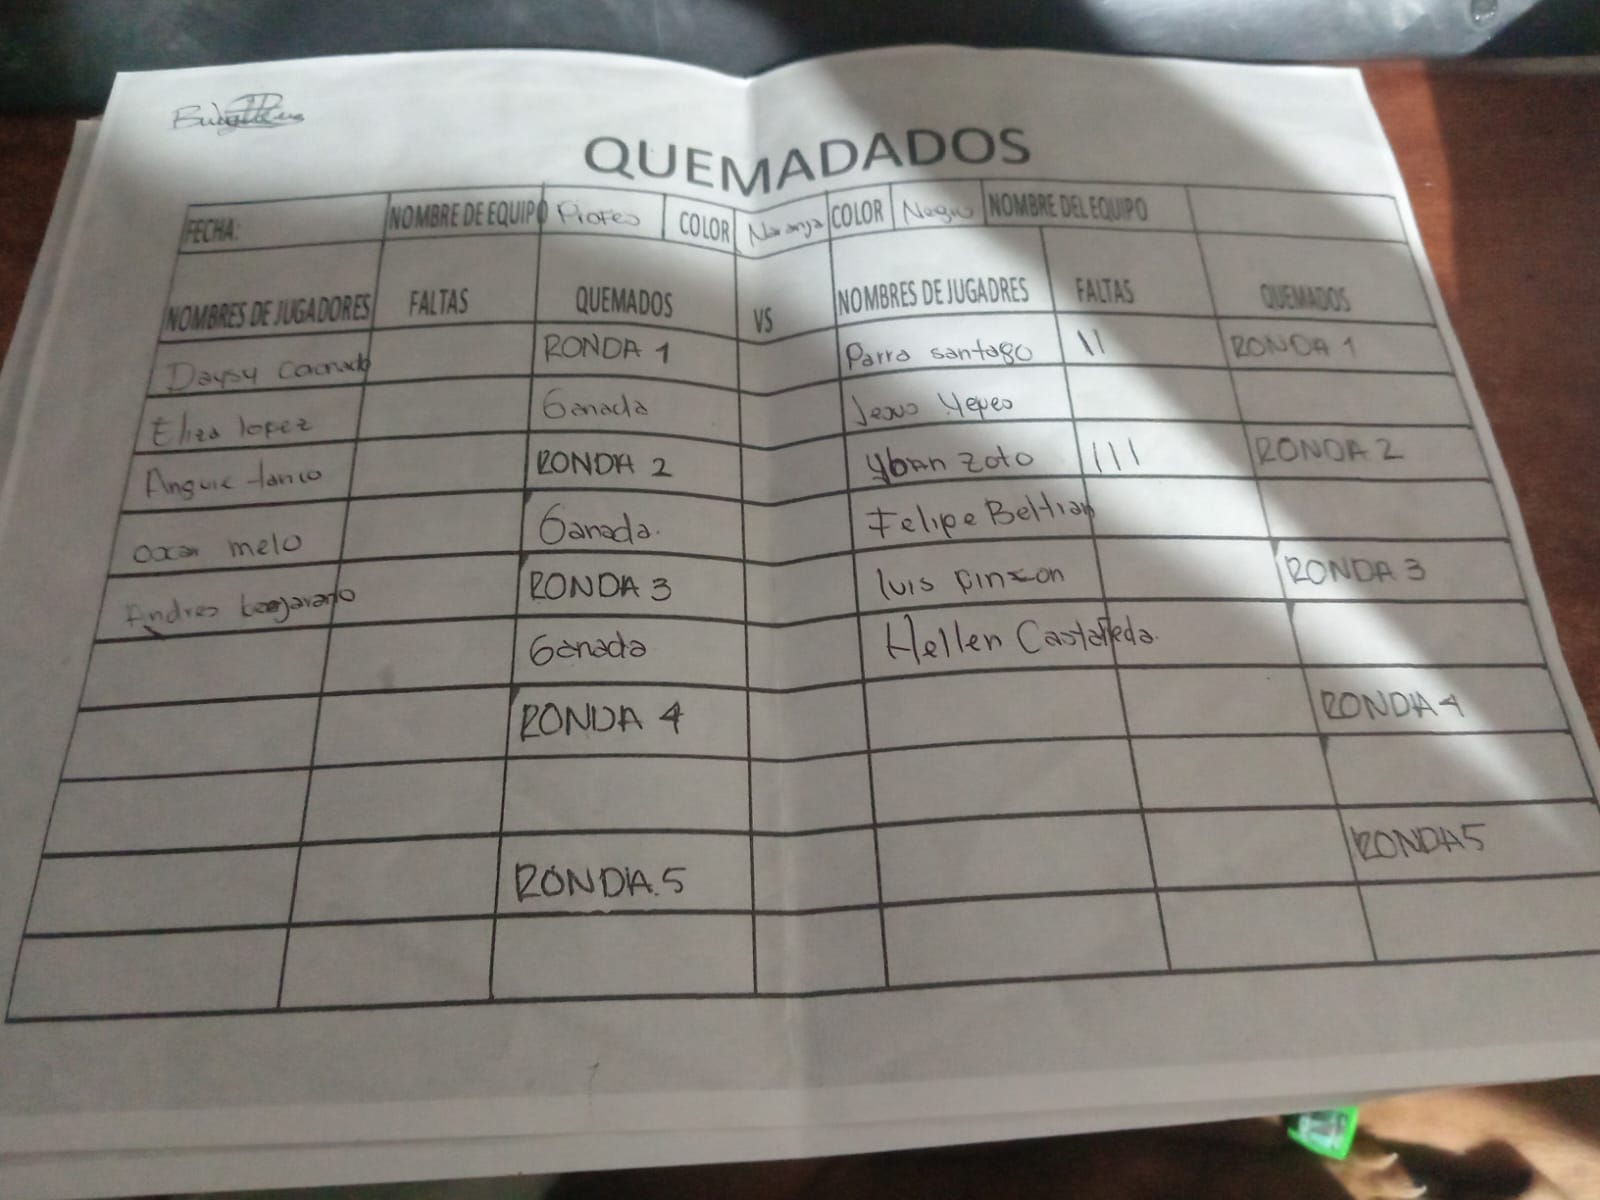 QUEMADADOS
FECHA: NOMBRE DE EQUIPO Profes COLOR Naranja COLOR Negro NOMBRE DEL EQUIPO
NOMBRES DE JUGADORES FALTAS QUEMADOS VS NOMBRES DE JUGADRES FALTAS QUEMADOS
Daysy RONDA 1 Parra santago II RONDA 1
Eliza lopez Ganada Jesus Yepes
Anguie RONDA 2 Yban zoto III RONDA 2
oscar melo Ganada. Felipe Beltran
Andres RONDA 3 luis pinzon RONDA 3
Ganada Hellen Castañeda.
RONDA 4 RONDA 4
RONDA.5 RONDA5